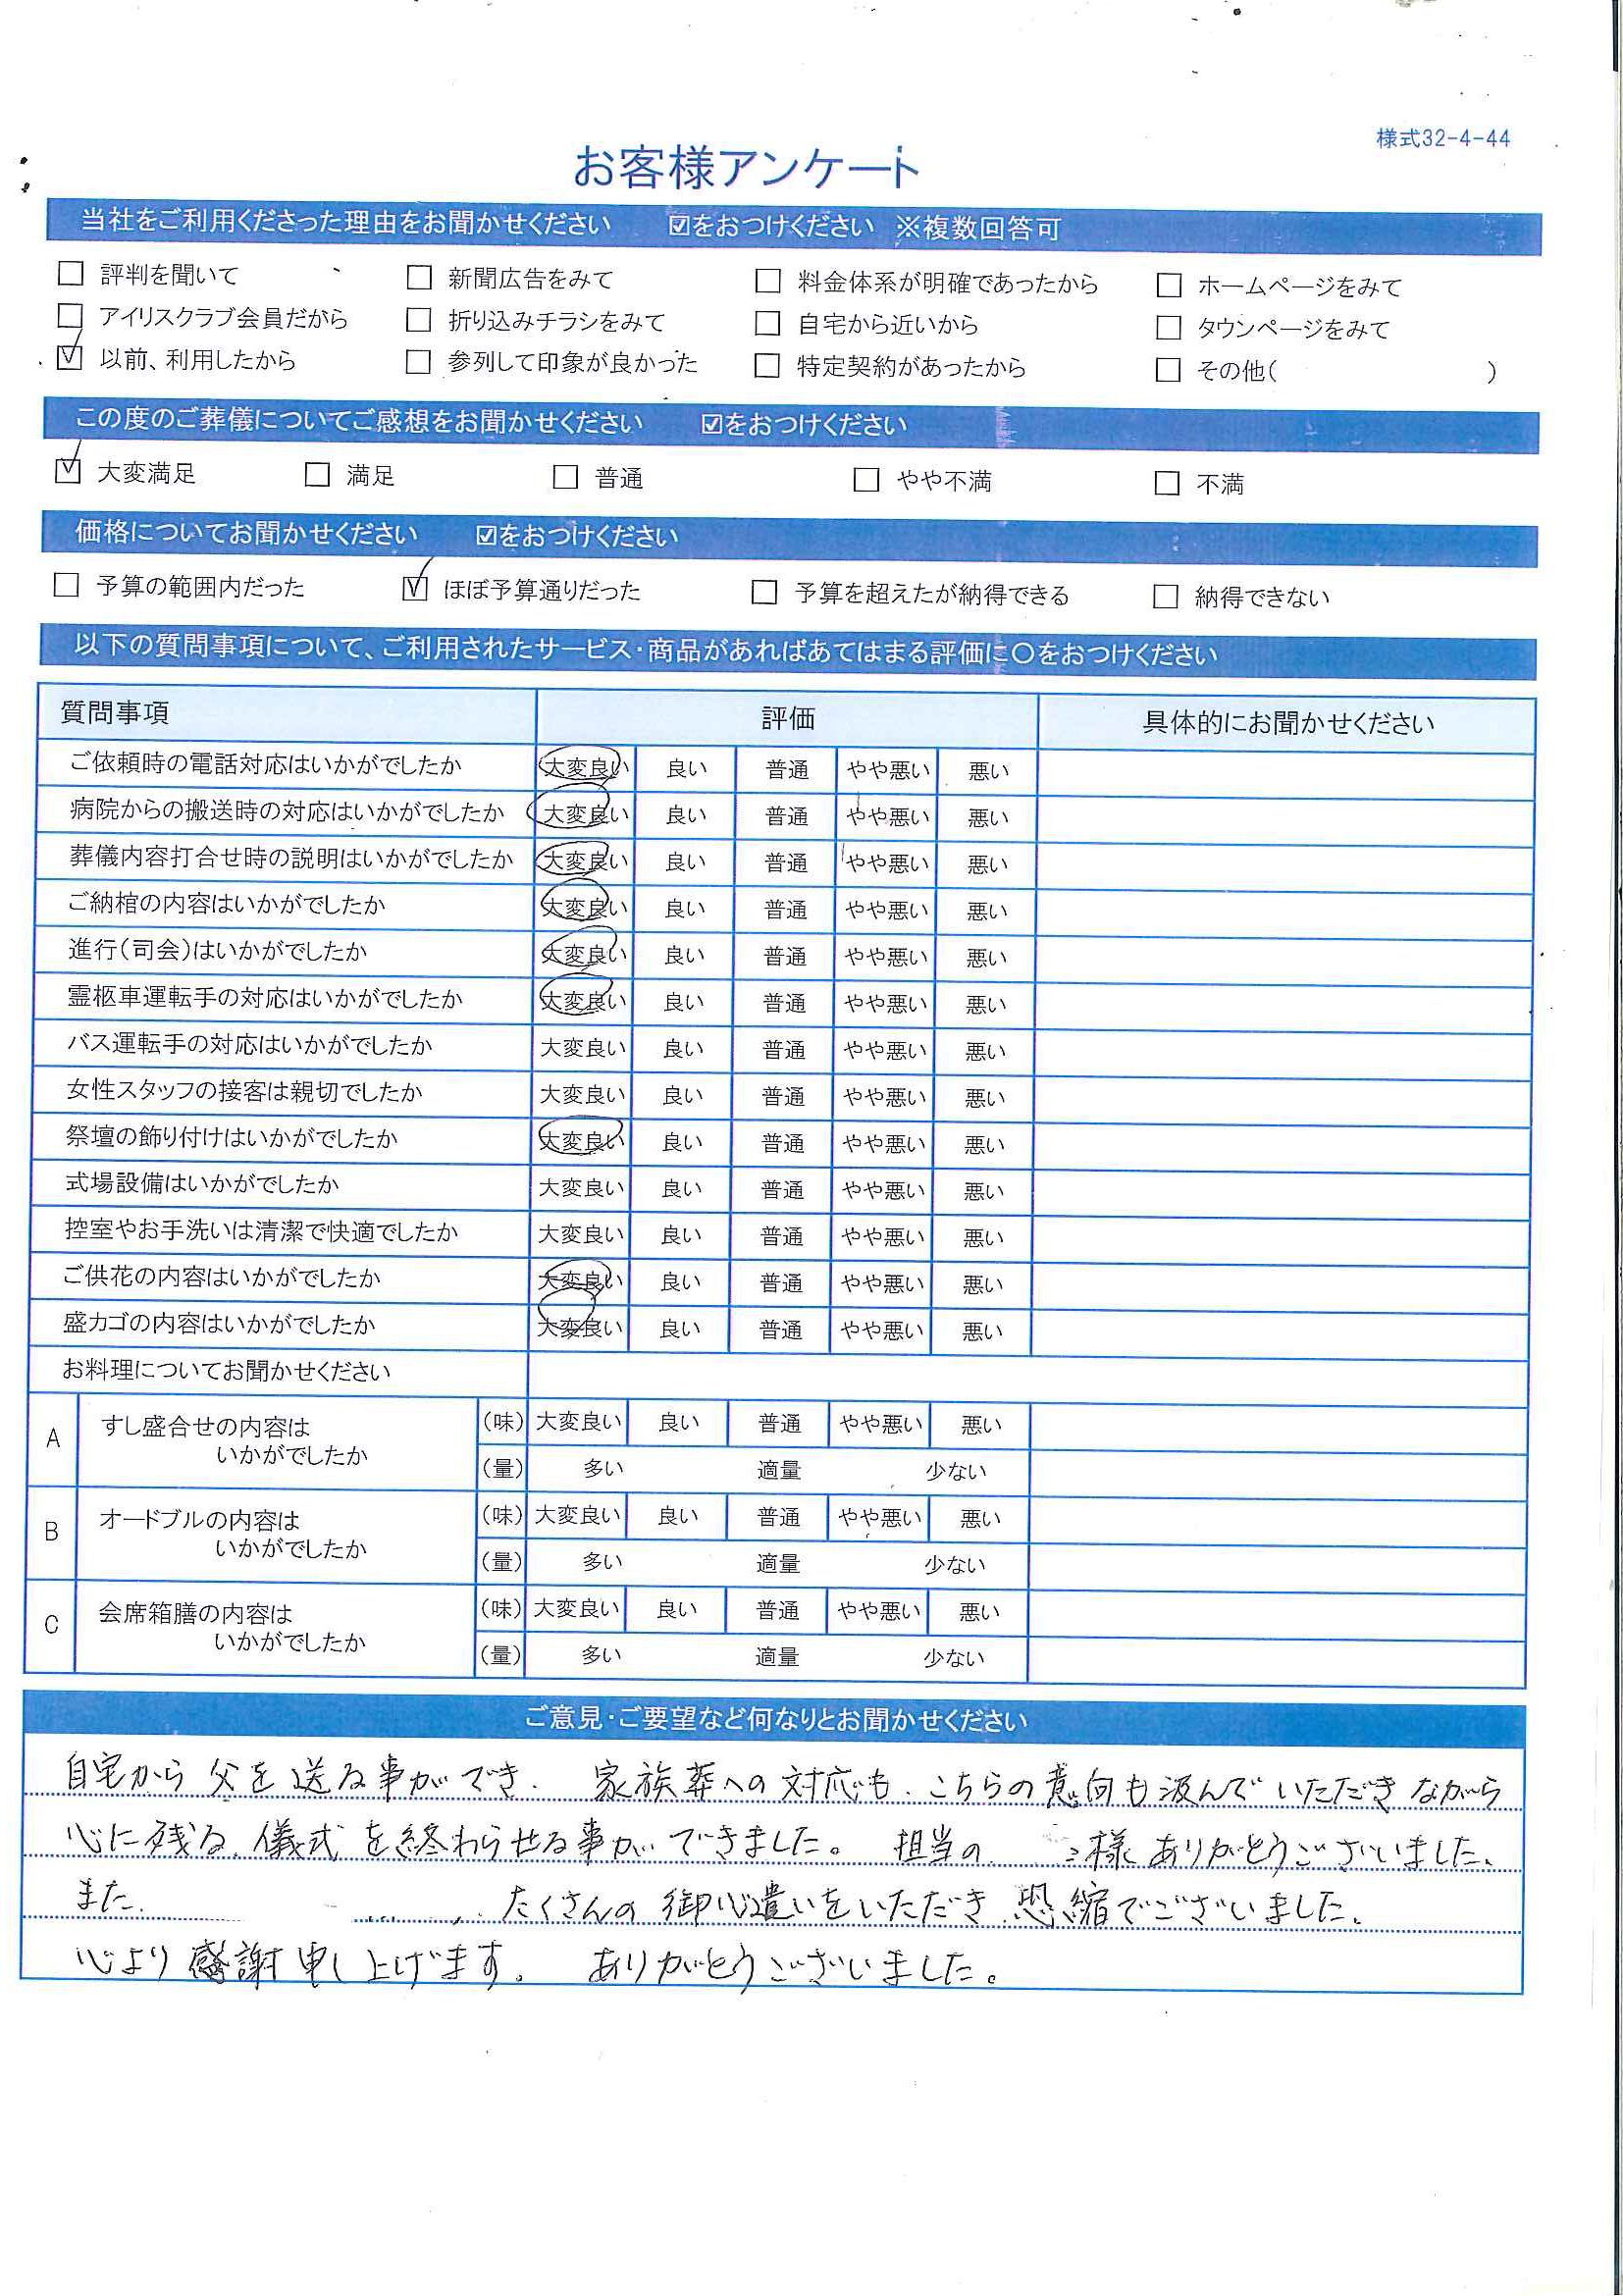 様式32-4-44
お客様アンケート
当社をご利用くださった理由をお聞かせください ☑をおつけください ※複数回答可
□ 評判を聞いて □ 新聞広告をみて □ 料金体系が明確であったから □ ホームページをみて
□ アイリスクラブ会員だから □ 折り込みチラシをみて □ 自宅から近いから □ タウンページをみて
☑ 以前、利用したから □ 参列して印象が良かった □ 特定契約があったから □ その他( )
この度のご葬儀についてご感想をお聞かせください ☑をおつけください
☑ 大変満足 □ 満足 □ 普通 □ やや不満 □ 不満
価格についてお聞かせください ☑をおつけください
□ 予算の範囲内だった ☑ ほぼ予算通りだった □ 予算を超えたが納得できる □ 納得できない
以下の質問事項について、ご利用されたサービス・商品があればあてはまる評価に○をおつけください
質問事項 評価 具体的にお聞かせください
ご依頼時の電話対応はいかがでしたか 大変良い 良い 普通 やや悪い 悪い
病院からの搬送時の対応はいかがでしたか 大変良い 良い 普通 やや悪い 悪い
葬儀内容打合せ時の説明はいかがでしたか 大変良い 良い 普通 やや悪い 悪い
ご納棺の内容はいかがでしたか 大変良い 良い 普通 やや悪い 悪い
進行(司会)はいかがでしたか 大変良い 良い 普通 やや悪い 悪い
霊柩車運転手の対応はいかがでしたか 大変良い 良い 普通 やや悪い 悪い
バス運転手の対応はいかがでしたか 大変良い 良い 普通 やや悪い 悪い
女性スタッフの接客は親切でしたか 大変良い 良い 普通 やや悪い 悪い
祭壇の飾り付けはいかがでしたか 大変良い 良い 普通 やや悪い 悪い
式場設備はいかがでしたか 大変良い 良い 普通 やや悪い 悪い
控室やお手洗いは清潔で快適でしたか 大変良い 良い 普通 やや悪い 悪い
ご供花の内容はいかがでしたか 大変良い 良い 普通 やや悪い 悪い
盛カゴの内容はいかがでしたか 大変良い 良い 普通 やや悪い 悪い
お料理についてお聞かせください
A すし盛合せの内容は (味) 大変良い 良い 普通 やや悪い 悪い
いかがでしたか (量) 多い 適量 少ない
B オードブルの内容は (味) 大変良い 良い 普通 やや悪い 悪い
いかがでしたか (量) 多い 適量 少ない
C 会席箱膳の内容は (味) 大変良い 良い 普通 やや悪い 悪い
いかがでしたか (量) 多い 適量 少ない
ご意見・ご要望など何なりとお聞かせください
自宅から父を送る事ができ、家族葬への対応も、こちらの意向も汲んでいただきながら
心に残る、儀式を終わらせる事ができました。 担当の 様ありがとうございました、
また、 たくさんの御心遣いをいただき恐縮でございました、
心より感謝申し上げます。 ありがとうございました。